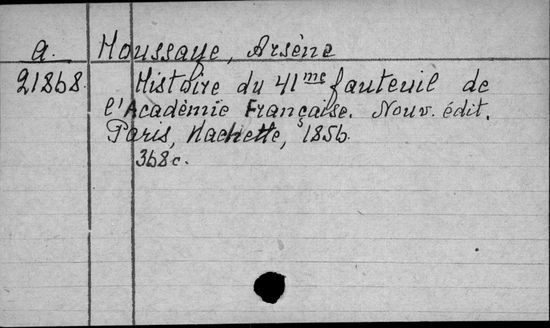 a. Houssaye, Arsène
21868. Histoire du 41me fauteuil de
l'Académie Française. Nouv. édit.
Paris, Hachette, 1856.
368 c.